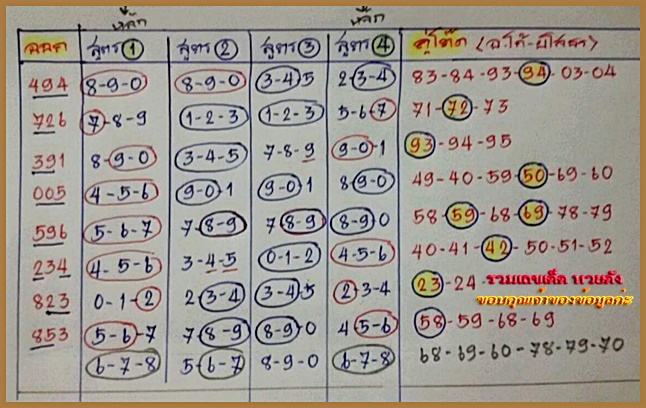 หลัก หลัก
ผลออก สูตร 1 สูตร 2 สูตร 3 สูตร 4 คู่โต๊ด
494 8-9-0 8-9-0 3-4-5 2-3-4 83-84-93-94-03-04
726 7-8-9 1-2-3 1-2-3 5-6-7 71-72-73
391 8-9-0 3-4-5 7-8-9 9-0-1 93-94-95
005 4-5-6 9-0-1 9-0-1 8-9-0 49-40-59-50-69-60
596 5-6-7 7-8-9 7-8-9 8-9-0 58-59-68-69-78-79
234 4-5-6 3-4-5 0-1-2 4-5-6 40-41-42-50-51-52
823 0-1-2 2-3-4 3-4-5 2-3-4 23-24
รวมเลขเด็ด หวยดัง
ขอบคุณเจ้าของข้อมูลค่ะ
853 5-6-7 7-8-9 8-9-0 4-5-6 58-59-68-69
6-7-8 5-6-7 8-9-0 6-7-8 68-69-60-78-79-70